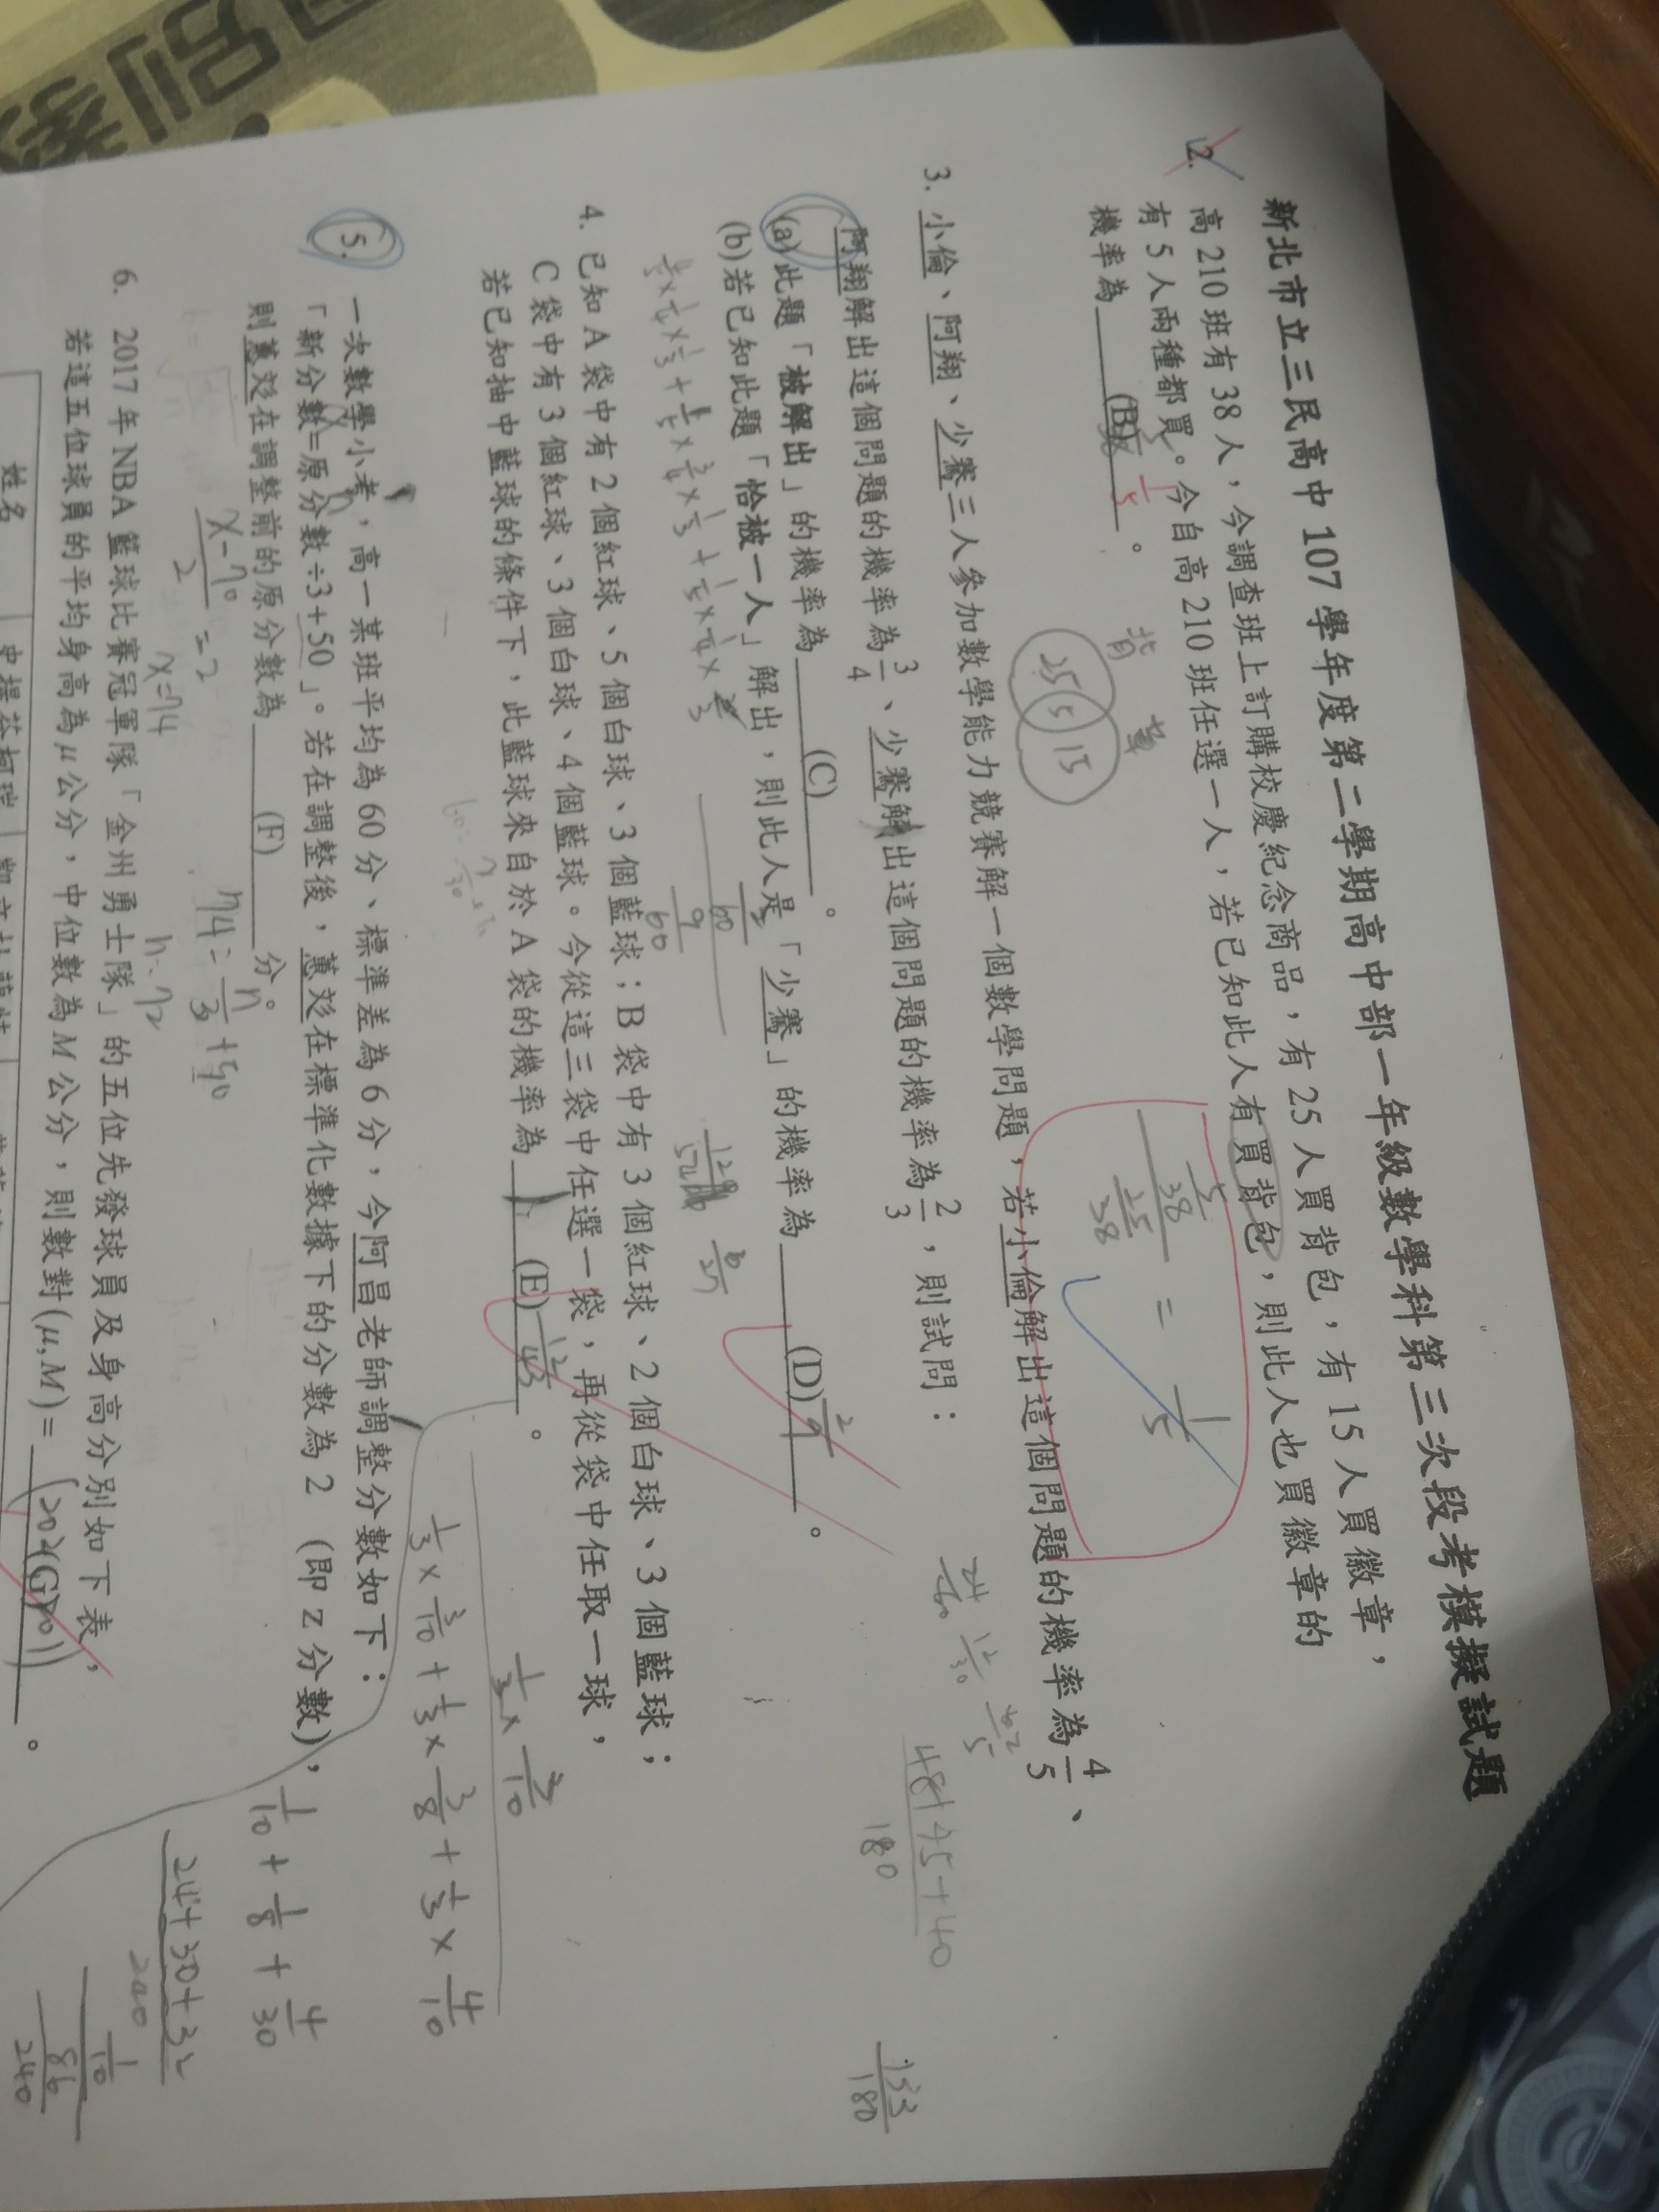 新北市立三民高中 107 學年度第二學期高中部一年級數學科第三次段考模擬試題
2. 高 210 班有 38 人，今調查班上訂購校慶紀念商品，有 25 人買背包，有 15 人買徽章，
有 5 人兩種都買。今自高 210 班任選一人，若已知此人有買背包，則此人也買徽章的
機率為 (B) 1/5 。
背 章
25 5 15
5/38
25/38
= 1/5
3. 小倫、阿翔、少騫三人參加數學能力競賽解一個數學問題，若小倫解出這個問題的機率為 4/5、
阿翔解出這個問題的機率為 3/4、少騫解出這個問題的機率為 2/3，則試問：
(a)此題「被解出」的機率為 (C) 。
(b)若已知此題「恰被一人」解出，則此人是「少騫」的機率為 (D) 2/9 。
24/60 12/30
48+45+40
180
133/180
9/60
4. 已知 A 袋中有 2 個紅球、5 個白球、3 個藍球；B 袋中有 3 個紅球、2 個白球、3 個藍球；
C 袋中有 3 個紅球、3 個白球、4 個藍球。今從這三袋中任選一袋，再從袋中任取一球，
若已知抽中藍球的條件下，此藍球來自於 A 袋的機率為 (E) 12/43 。
1/3 × 3/10
1/3 × 3/10 + 1/3 × 3/8 + 1/3 × 4/10
1/10 + 1/8 + 4/30
24+30+32
240
1/10
86/240
5. 一次數學小考，高一某班平均為 60 分、標準差為 6 分，今阿昌老師調整分數如下：
「新分數=原分數÷3+50」。若在調整後，蕙彣在標準化數據下的分數為 2 (即 z 分數)，
則蕙彣在調整前的原分數為 (F) 分。
x-70
2
= 2
x=74
74 = n/3 + 50
n=72
6. 2017 年 NBA 籃球比賽冠軍隊「金州勇士隊」的五位先發球員及身高分別如下表，
若這五位球員的平均身高為 μ 公分，中位數為 M 公分，則數對(μ,M)= (202(G) 201) 。
姓名